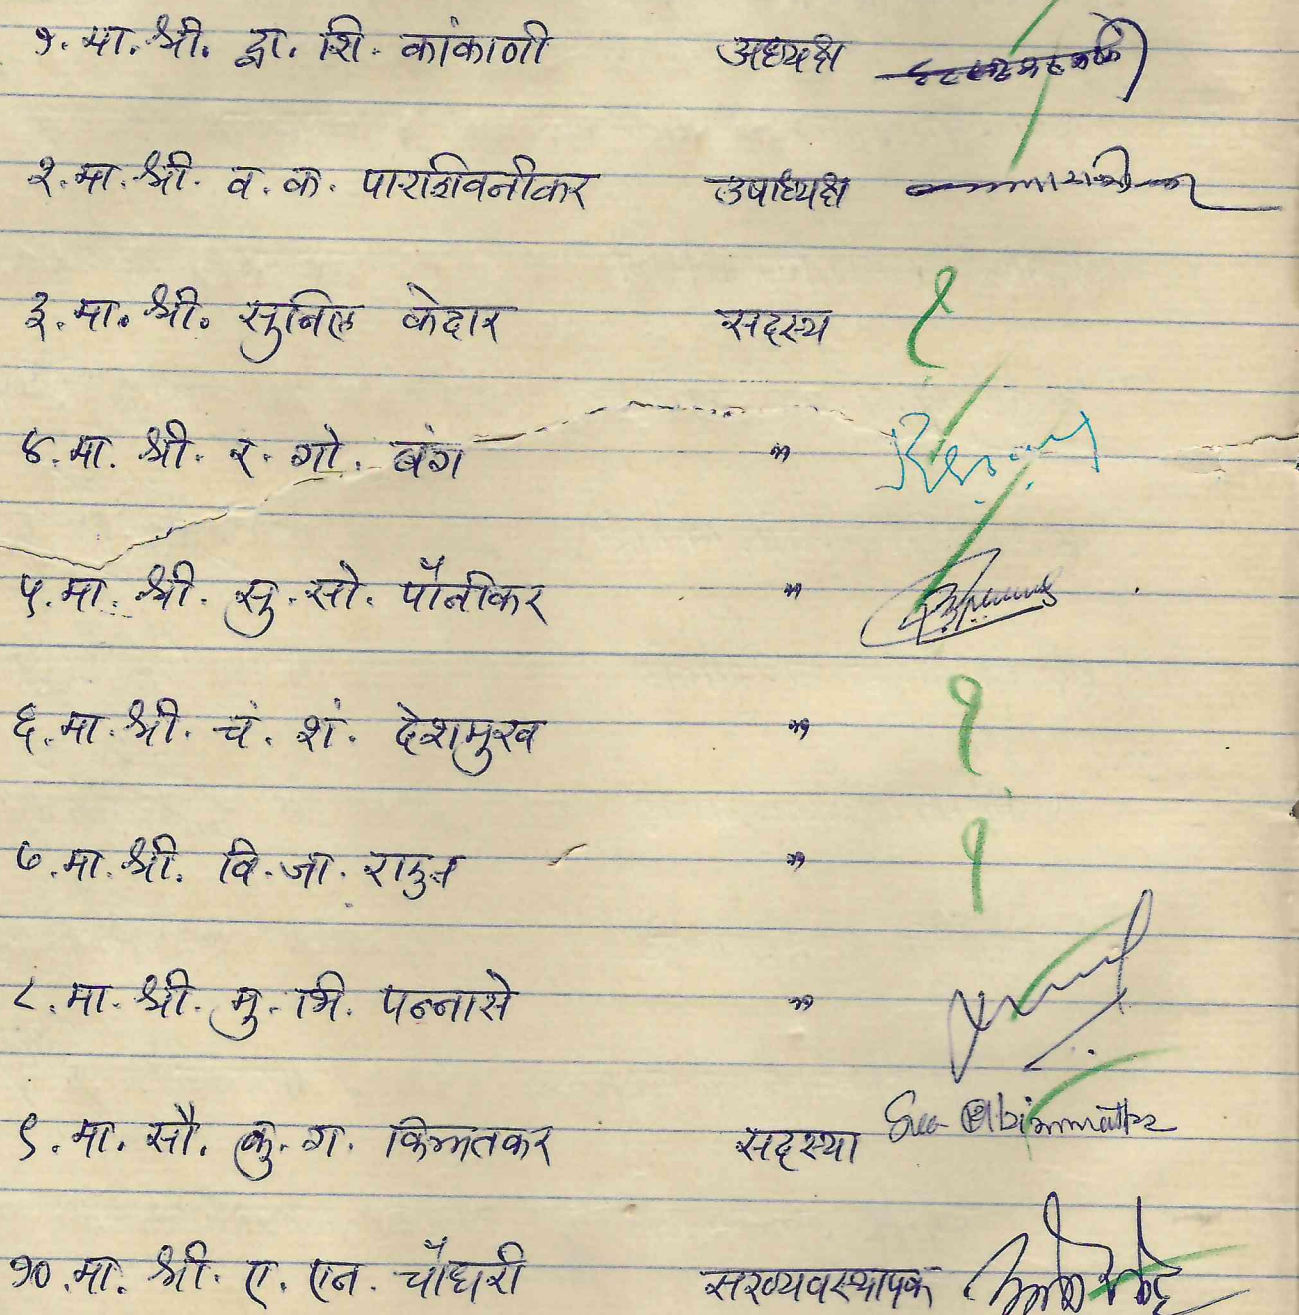 १. मा. श्री. द्वा. शि. कांकाणी अध्यक्ष
२. मा. श्री. व. क. पारशिवनीकर उपाध्यक्ष
३. मा. श्री. सुनिल केदार सदस्य
४. मा. श्री. र. गो. बंग "
५. मा. श्री. सु. सो. पौनीकर "
६. मा. श्री. चं. शं. देशमुख "
७. मा. श्री. वि. जा. "
८. मा. श्री. मु. भि. पन्नासे "
९. मा. सौ. कु. ग. किम्मतकर सदस्या
१०. मा. श्री. ए. एन. चौधरी सरव्यवस्थापक